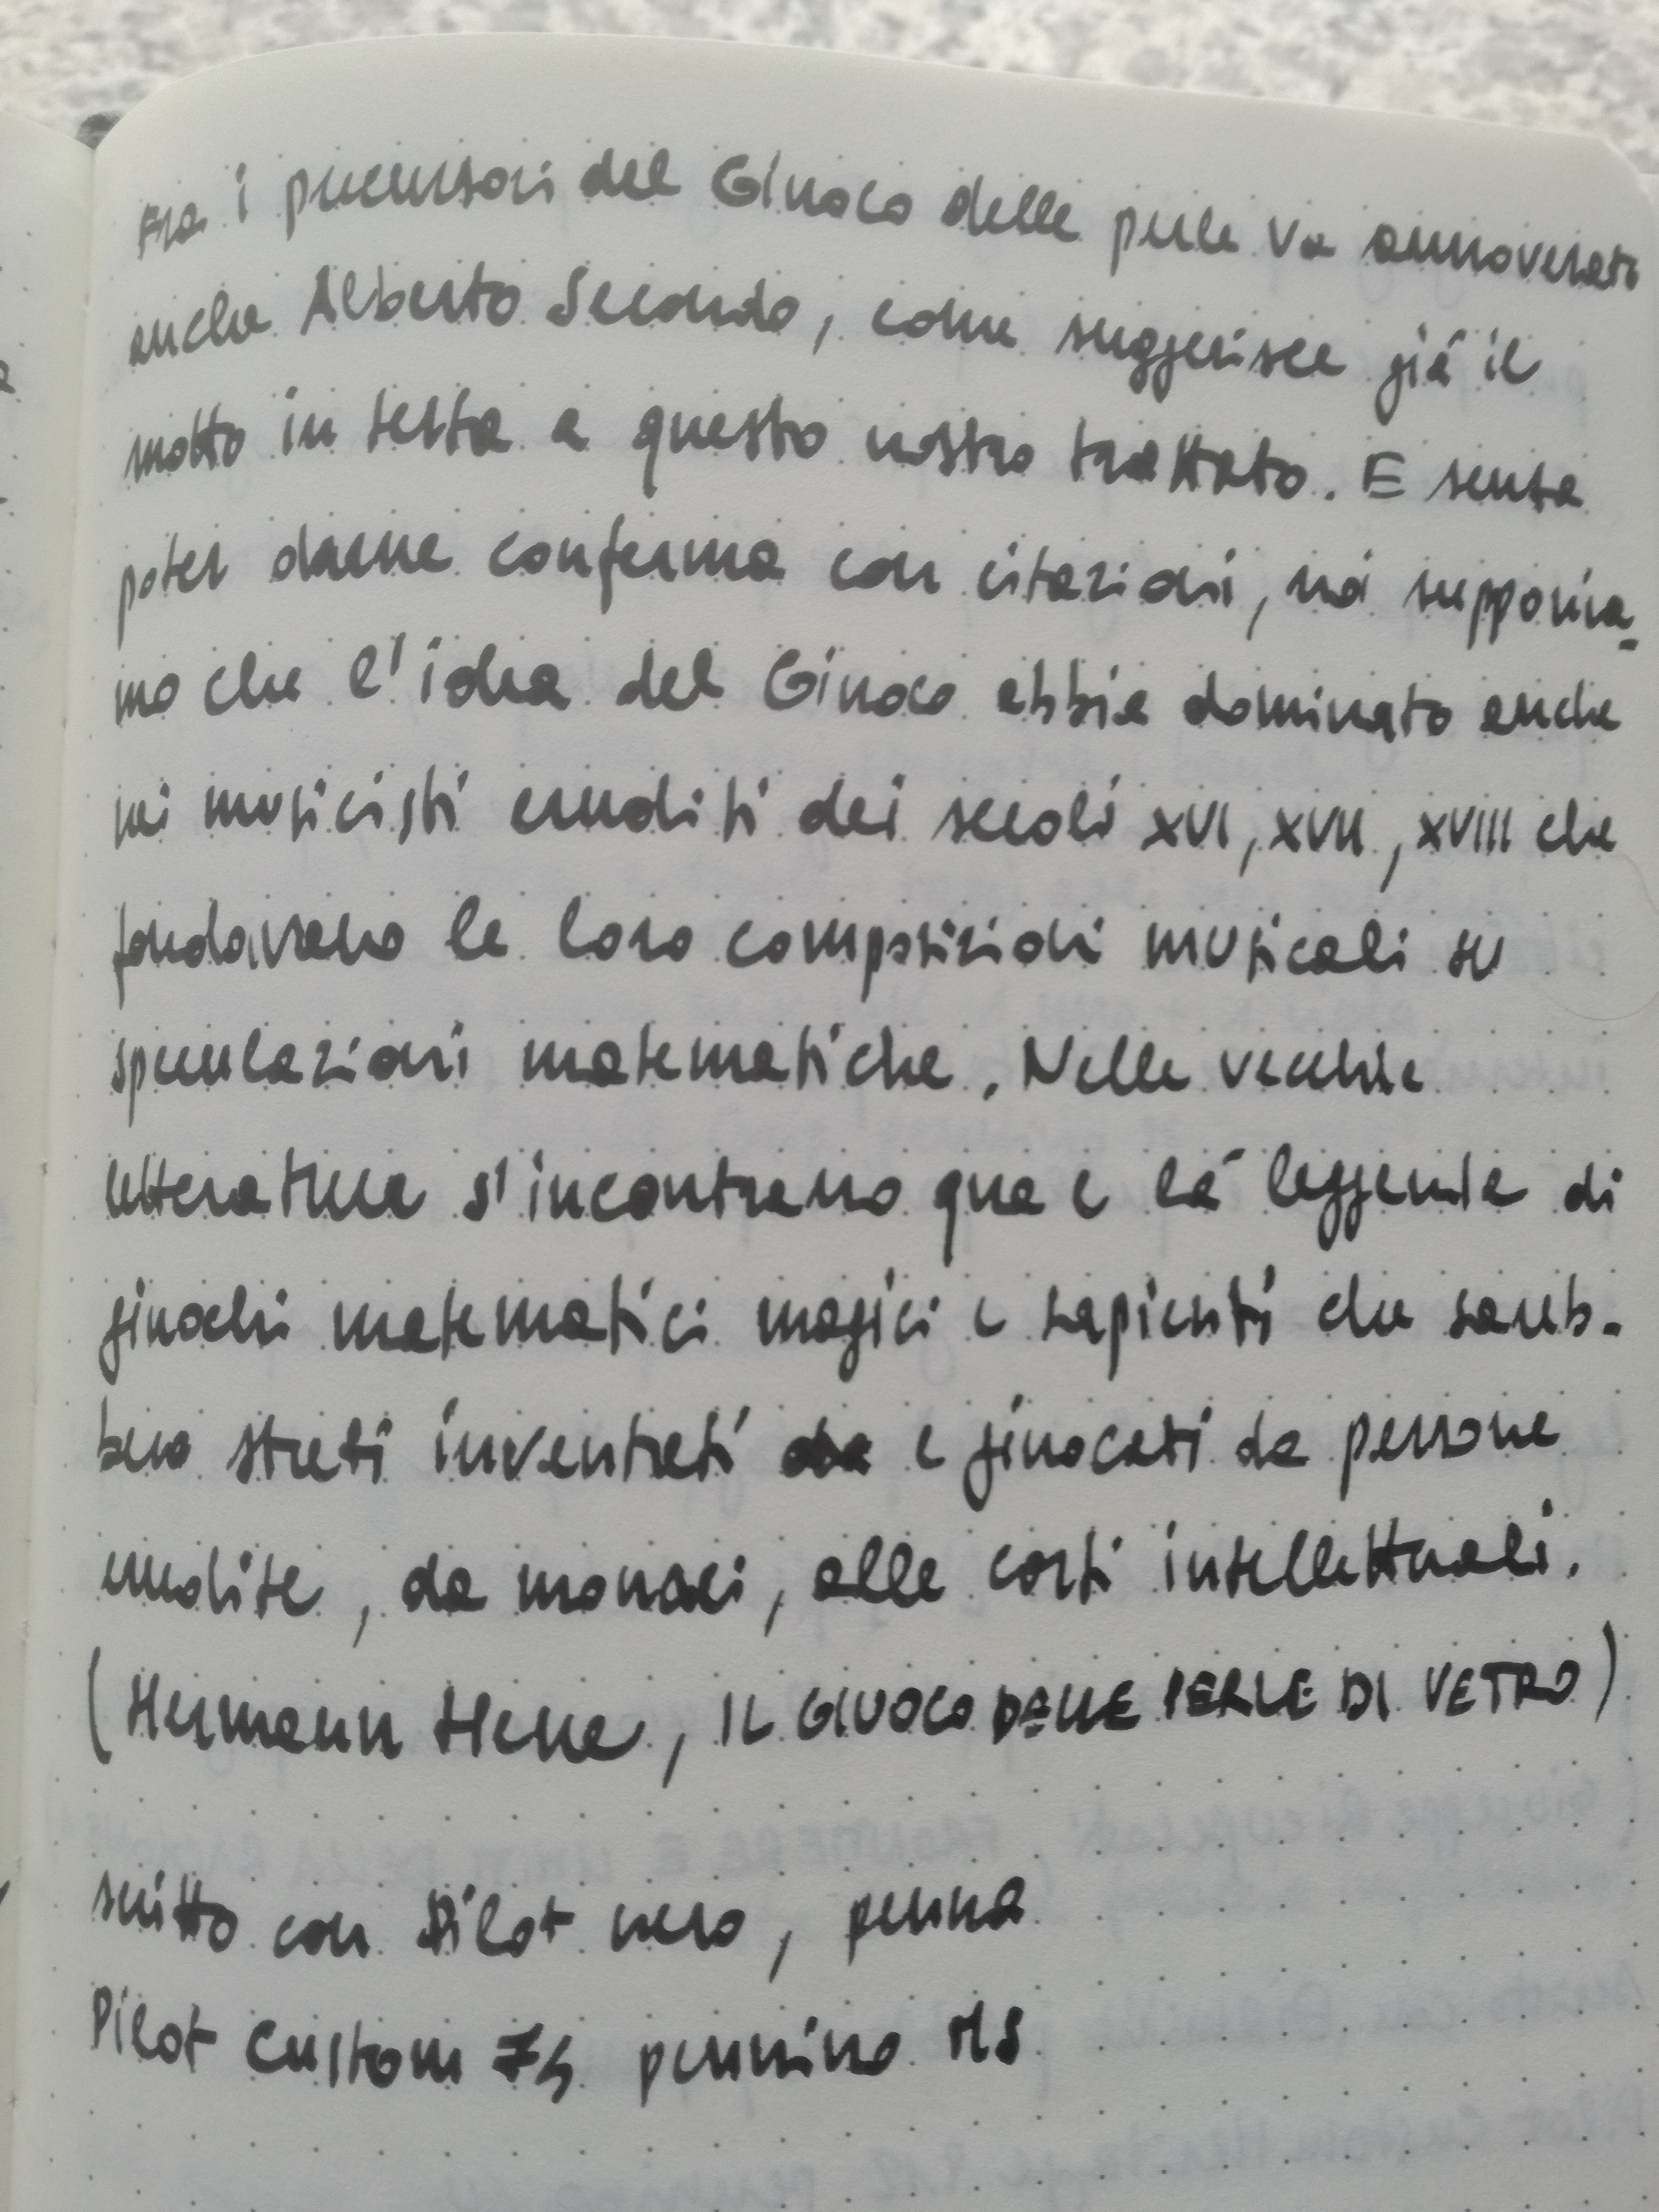 Fra i precursori del Giuoco delle perle va annoverato
anche Alberto Secondo, come suggerisce già il
motto in testa a questo nostro trattato. E senza
poter darne conferma con citazioni, noi supponia-
mo che l'idea del Giuoco abbia dominato anche
nei musicisti eruditi dei secoli XVI, XVII, XVIII che
fondavano le loro composizioni musicali su
speculazioni matematiche. Nelle vecchie
letterature s'incontrano qua e là leggende di
giuochi matematici magici e sapienti che sareb-
bero stati inventati e giuocati da persone
erudite, da monaci, alle corti intellettuali.
(Hermann Hesse, IL GIUOCO DELLE PERLE DI VETRO)
scritto con Pilot nero, penna
Pilot Custom 74 pennino MS